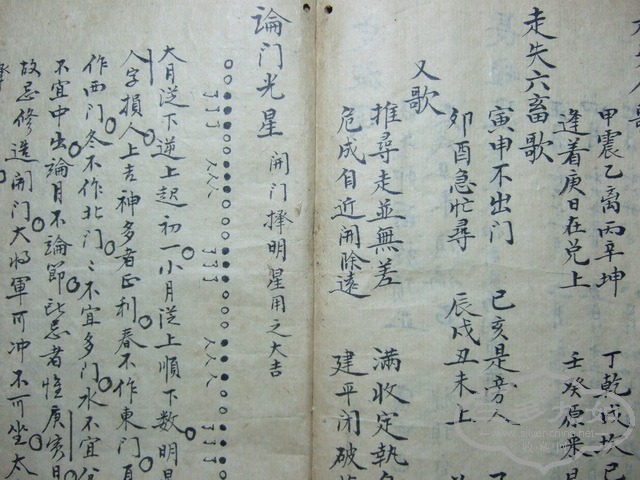 甲震乙离丙辛坤 丁乾
逢着庚日在兑上 壬癸原来
走失六畜歌
寅申不出门 已亥是旁人
卯酉急忙尋 辰戌丑未上
又歌
推尋走並無差 满收定執
危成自近開除遠 建平闭破
論门光星 開门擇明星用之大吉
大月従下逆上起初一小月従上順下数明
人字損人上吉神多者正利春不作東门
作西门冬不作北门〻不宜多门水不宜
不宜中出論月不論節此忌者惟庚寅日
故忌修造開门大将軍可冲不可坐太